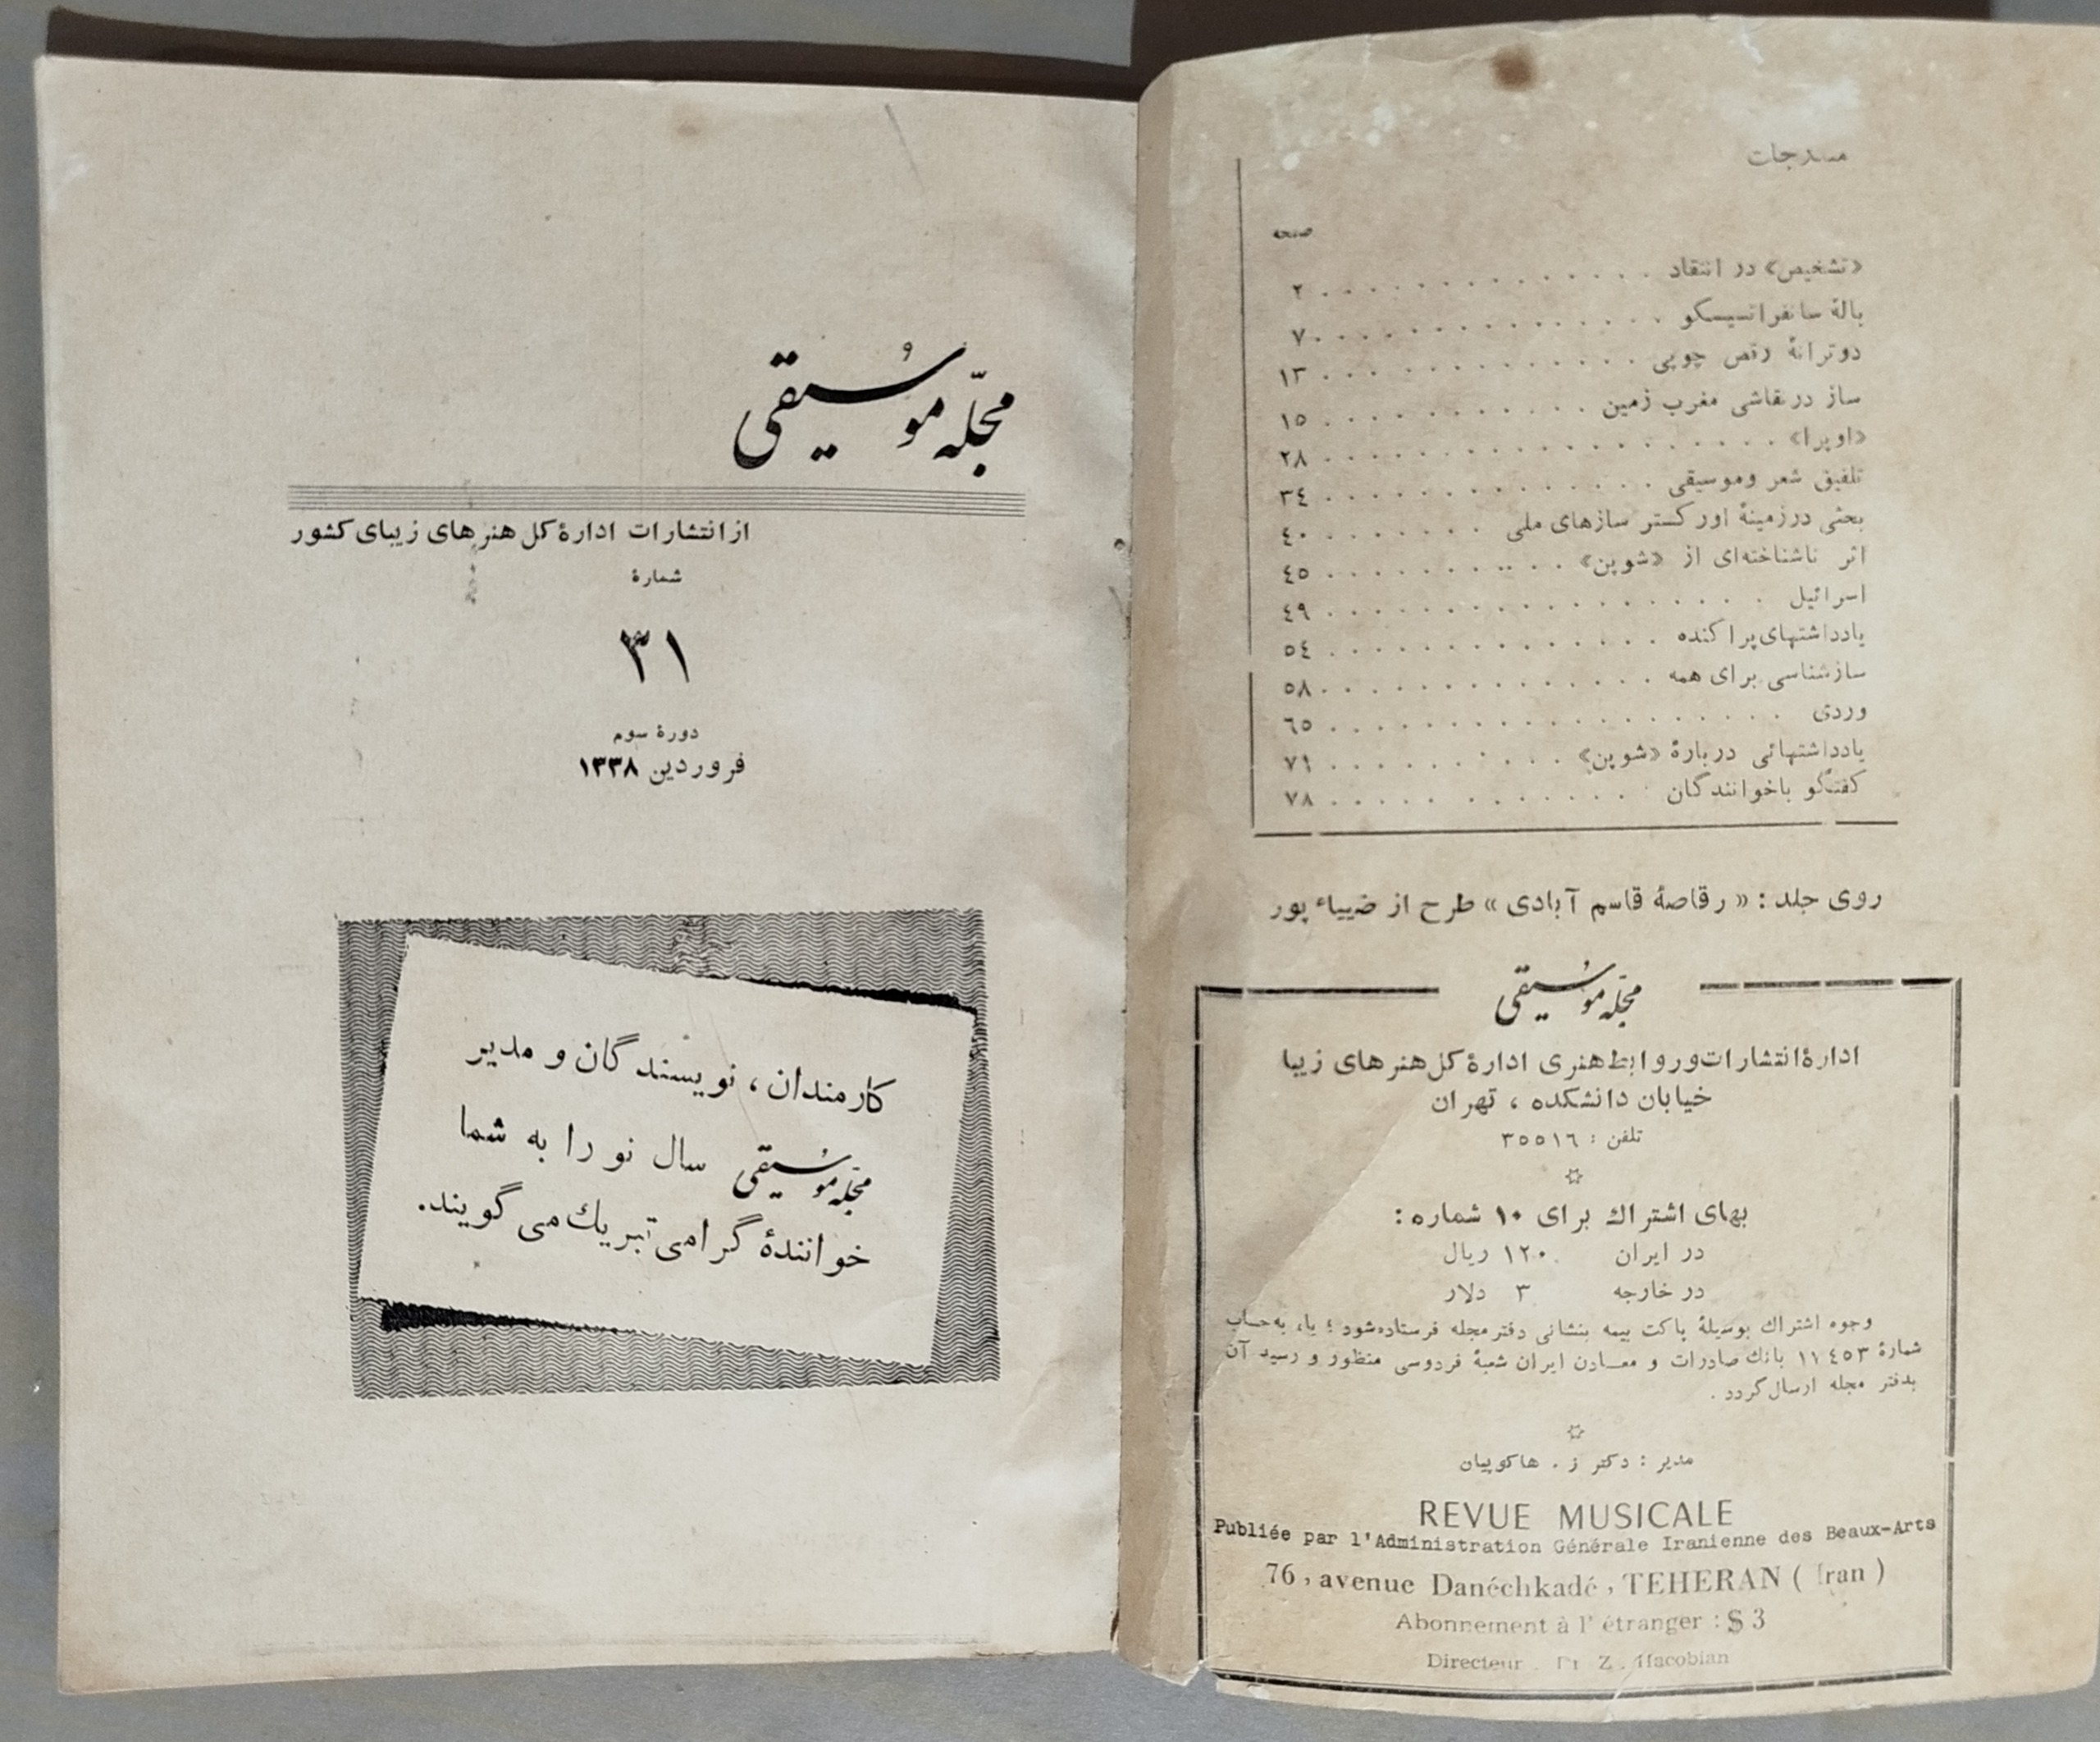 مندرجات
صفحه
«تشخیص» در انتقاد . . . . . . . . . . . . . ۲
بالهٔ سانفرانسیسکو . . . . . . . . . . . . . ۷
دو ترانهٔ رقص چوبی . . . . . . . . . . . . . ۱۳
ساز در نقاشی مغرب زمین . . . . . . . . . . . ۱۵
«اوپرا» . . . . . . . . . . . . . . . . . ۲۸
تلفیق شعر و موسیقی . . . . . . . . . . . . . ۳٤
بحثی در زمینهٔ اورکستر سازهای ملی . . . . . . . ٤۰
اثر ناشناخته‌ای از «شوپن» . . . . . . . . . . ٤٥
اسرائیل . . . . . . . . . . . . . . . . . ٤۹
یادداشتهای پراکنده . . . . . . . . . . . . . ٥٤
سازشناسی برای همه . . . . . . . . . . . . . ٥۸
وردی . . . . . . . . . . . . . . . . . ٦٥
یادداشتهائی دربارهٔ «شوپن» . . . . . . . . . . ۷۱
گفتگو با خوانندگان . . . . . . . . . . . . ۷۸
روی جلد : « رقاصهٔ قاسم آبادی » طرح از ضیاء پور
مجلّه موسیقی
ادارهٔ انتشارات و روابط هنری ادارهٔ کل هنرهای زیبا
خیابان دانشکده ، تهران
تلفن : ۳٥٥۱٦
بهای اشتراك برای ۱۰ شماره :
در ایران ۱۲۰ ریال
در خارجه ۳ دلار
وجوه اشتراك بوسیلهٔ پاکت بیمه بنشانی دفتر مجله فرستاده شود ؛ یا، به حساب
شمارهٔ ۱۱٤٥۳ بانك صادرات و معادن ایران شعبهٔ فردوسی منظور و رسید آن
بدفتر مجله ارسال گردد .
مدیر : دکتر ز . هاکوپیان
REVUE MUSICALE
Publiée par l'Administration Générale Iranienne des Beaux-Arts
76 , avenue Danéchkadé , TEHERAN ( Iran )
Abonnement à l' étranger : $ 3
Directeur . Dr Z . Hacobian
مجلّه موُسیقی
از انتشارات ادارهٔ کل هنرهای زیبای کشور
شمارهٔ
۳۱
دورهٔ سوم
فروردین ۱۳۳۸
کارمندان ، نویسندگان و مدیر
مجلّه موُسیقی سال نو را به شما
خوانندهٔ گرامی تبریك می گویند.